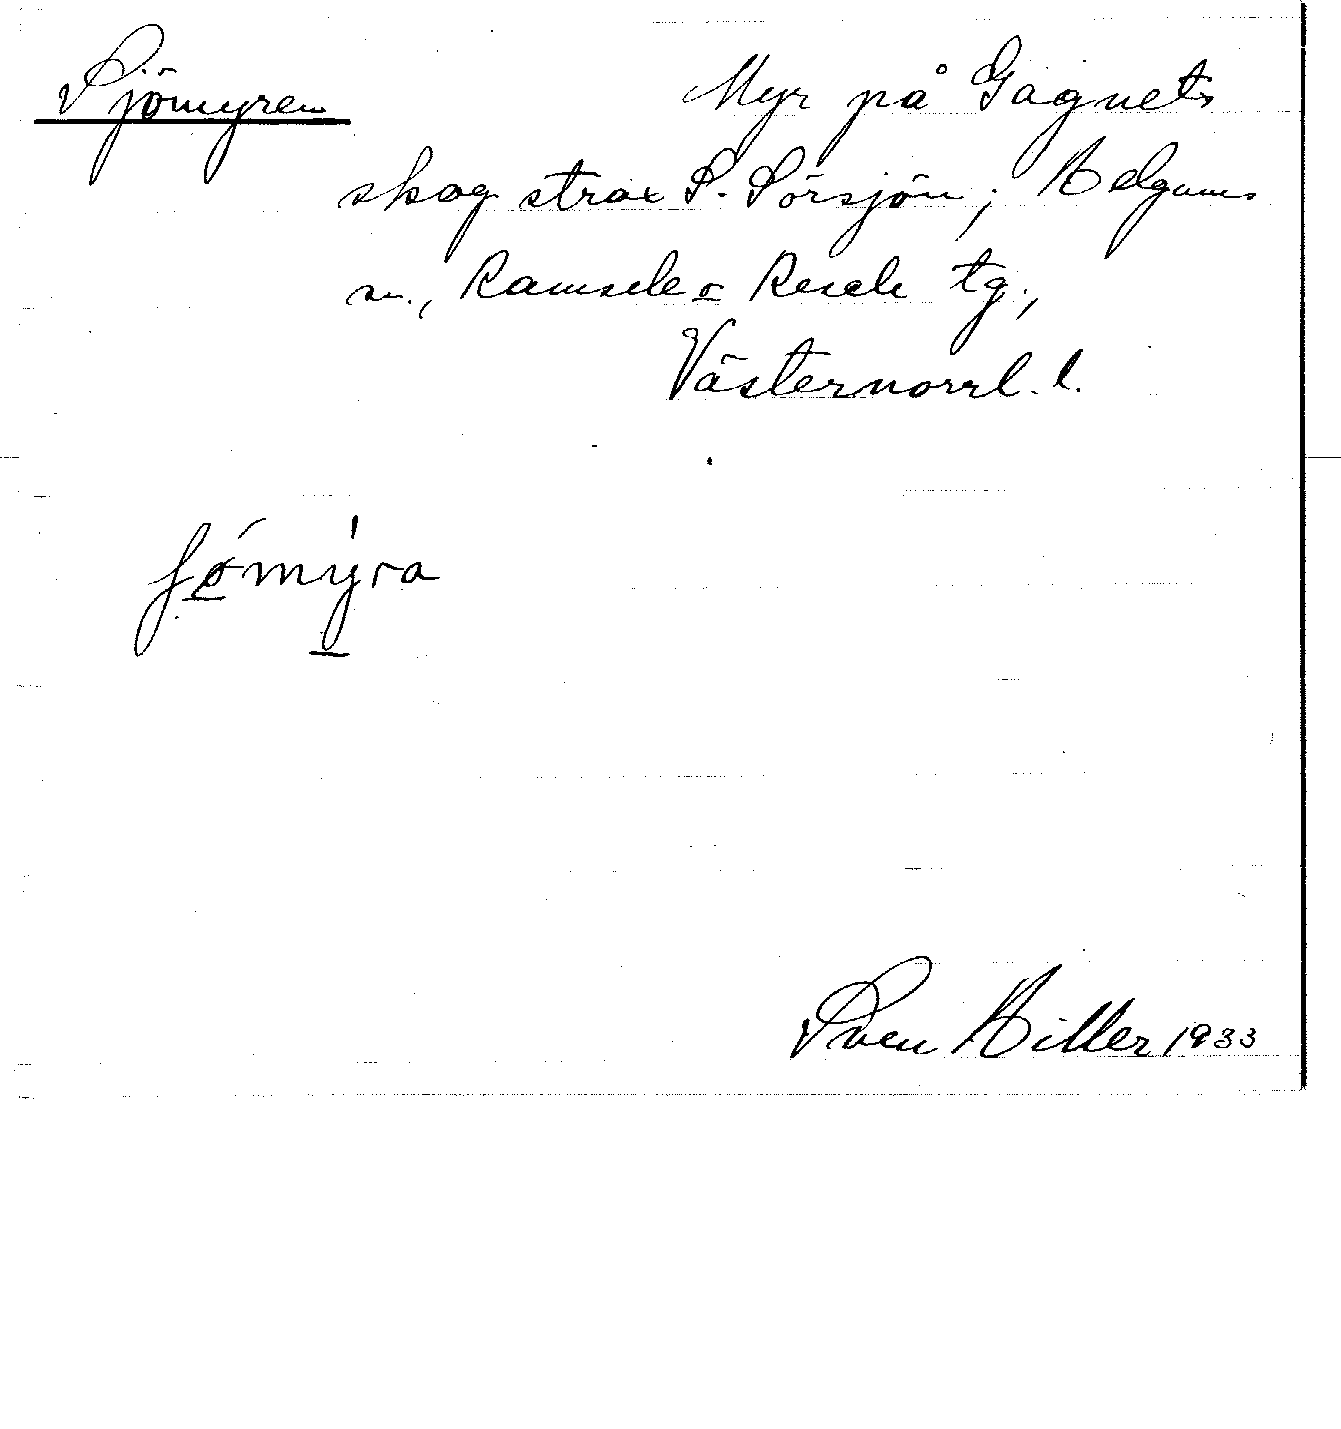 Sjömyren
Myr på Gagnets
skog strax S. Sörsjön; Helgums
sn., Ramsele o Resele tg.,
Västernorrl. l.
ʃǿmýra
Sven Hiller 1933